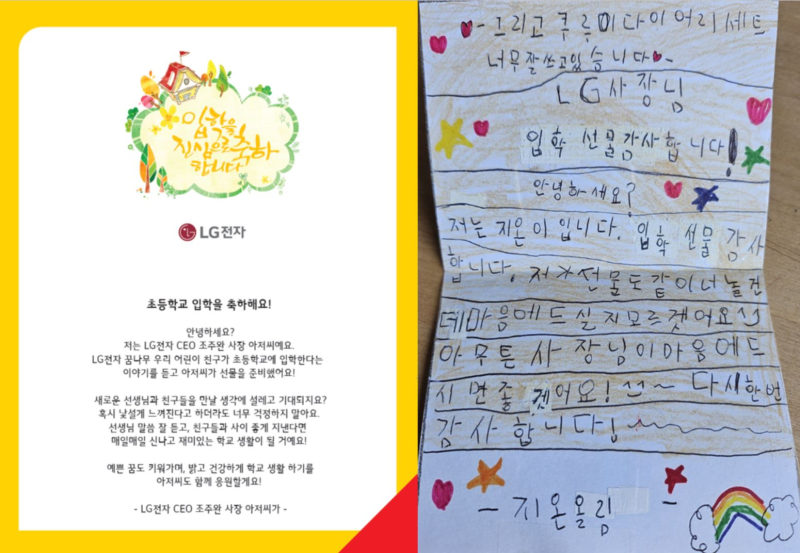 입학을
진심으로 축하
합니다
LG전자
초등학교 입학을 축하해요!
안녕하세요?
저는 LG전자 CEO 조주완 사장 아저씨예요.
LG전자 꿈나무 우리 어린이 친구가 초등학교에 입학한다는
이야기를 듣고 아저씨가 선물을 준비했어요!
새로운 선생님과 친구들을 만날 생각에 설레고 기대되지요?
혹시 낯설게 느껴진다고 하더라도 너무 걱정하지 말아요.
선생님 말씀 잘 듣고, 친구들과 사이 좋게 지낸다면
매일매일 신나고 재미있는 학교 생활이 될 거예요!
예쁜 꿈도 키워가며, 밝고 건강하게 학교 생활 하기를
아저씨도 함께 응원할게요!
- LG전자 CEO 조주완 사장 아저씨가 -
- 그리고 쿠루미다이어리세트
너무잘쓰고있습니다♥-
LG사장님
입학 선물감사합니다!
안녕하세요?
저는 지온이입니다. 입학 선물 감사
합니다. 저가 선물도 같이 너놀건
데마음에드실지모르겟어요^^
아무튼 사장님이마음에드
시면좋겟어요! ^^~ 다시한번
감사합니다!
- 지온올림 -